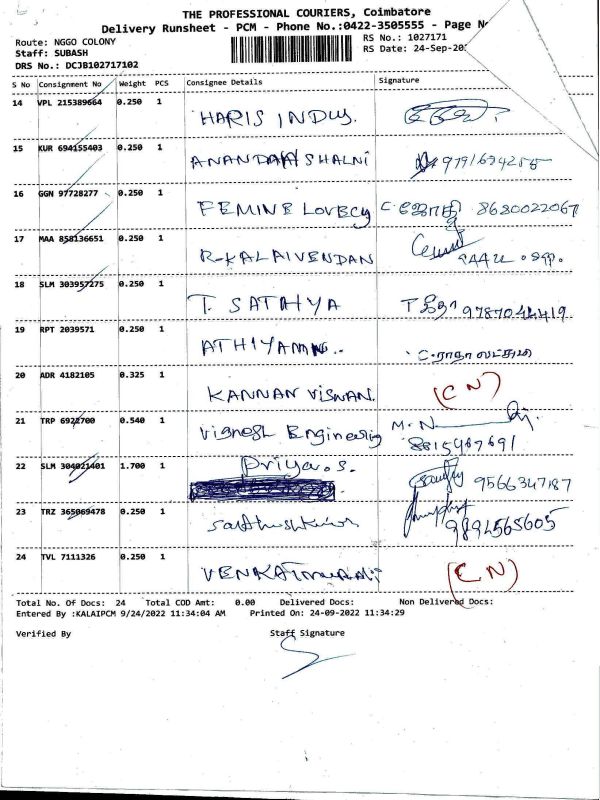 THE PROFESSIONAL COURIERS, Coimbatore
Delivery Runsheet - PCM - Phone No.:0422-3505555 - Page
Route: NGGO COLONY
RS No.: 1027171
Staff: SUBASH
RS Date: 24-Sep-20
DRS No.: DCJB102717102
S No Consignment No Weight PCS Consignee Details Signature
14 VPL 215389664 0.250 1 HARIS INDUS.
15 KUR 694155403 0.250 1
16 GGN 97728277 0.250 1 FEMINE C. ஜோதி 8630022067
17 MAA 858136651 0.250 1 R-KALAIVENDAN
18 SLM 303957275 0.250 1 T. SATHYA 9787044419
19 RPT 2039571 0.250 1
20 ADR 4182105 0.325 1 KANNAN VISNAN. (CN)
21 TRP 6922700 0.540 1 Vignesh Engineering M. N 8815467691
22 SLM 304021401 1.700 1 Priya. S. 9566347187
23 TRZ 365069478 0.250 1 9894565605
24 TVL 7111326 0.250 1 (CN)
Total No. Of Docs: 24 Total COD Amt: 0.00 Delivered Docs: Non Delivered Docs:
Entered By :KALAIPCM 9/24/2022 11:34:04 AM Printed On: 24-09-2022 11:34:29
Verified By Staff Signature